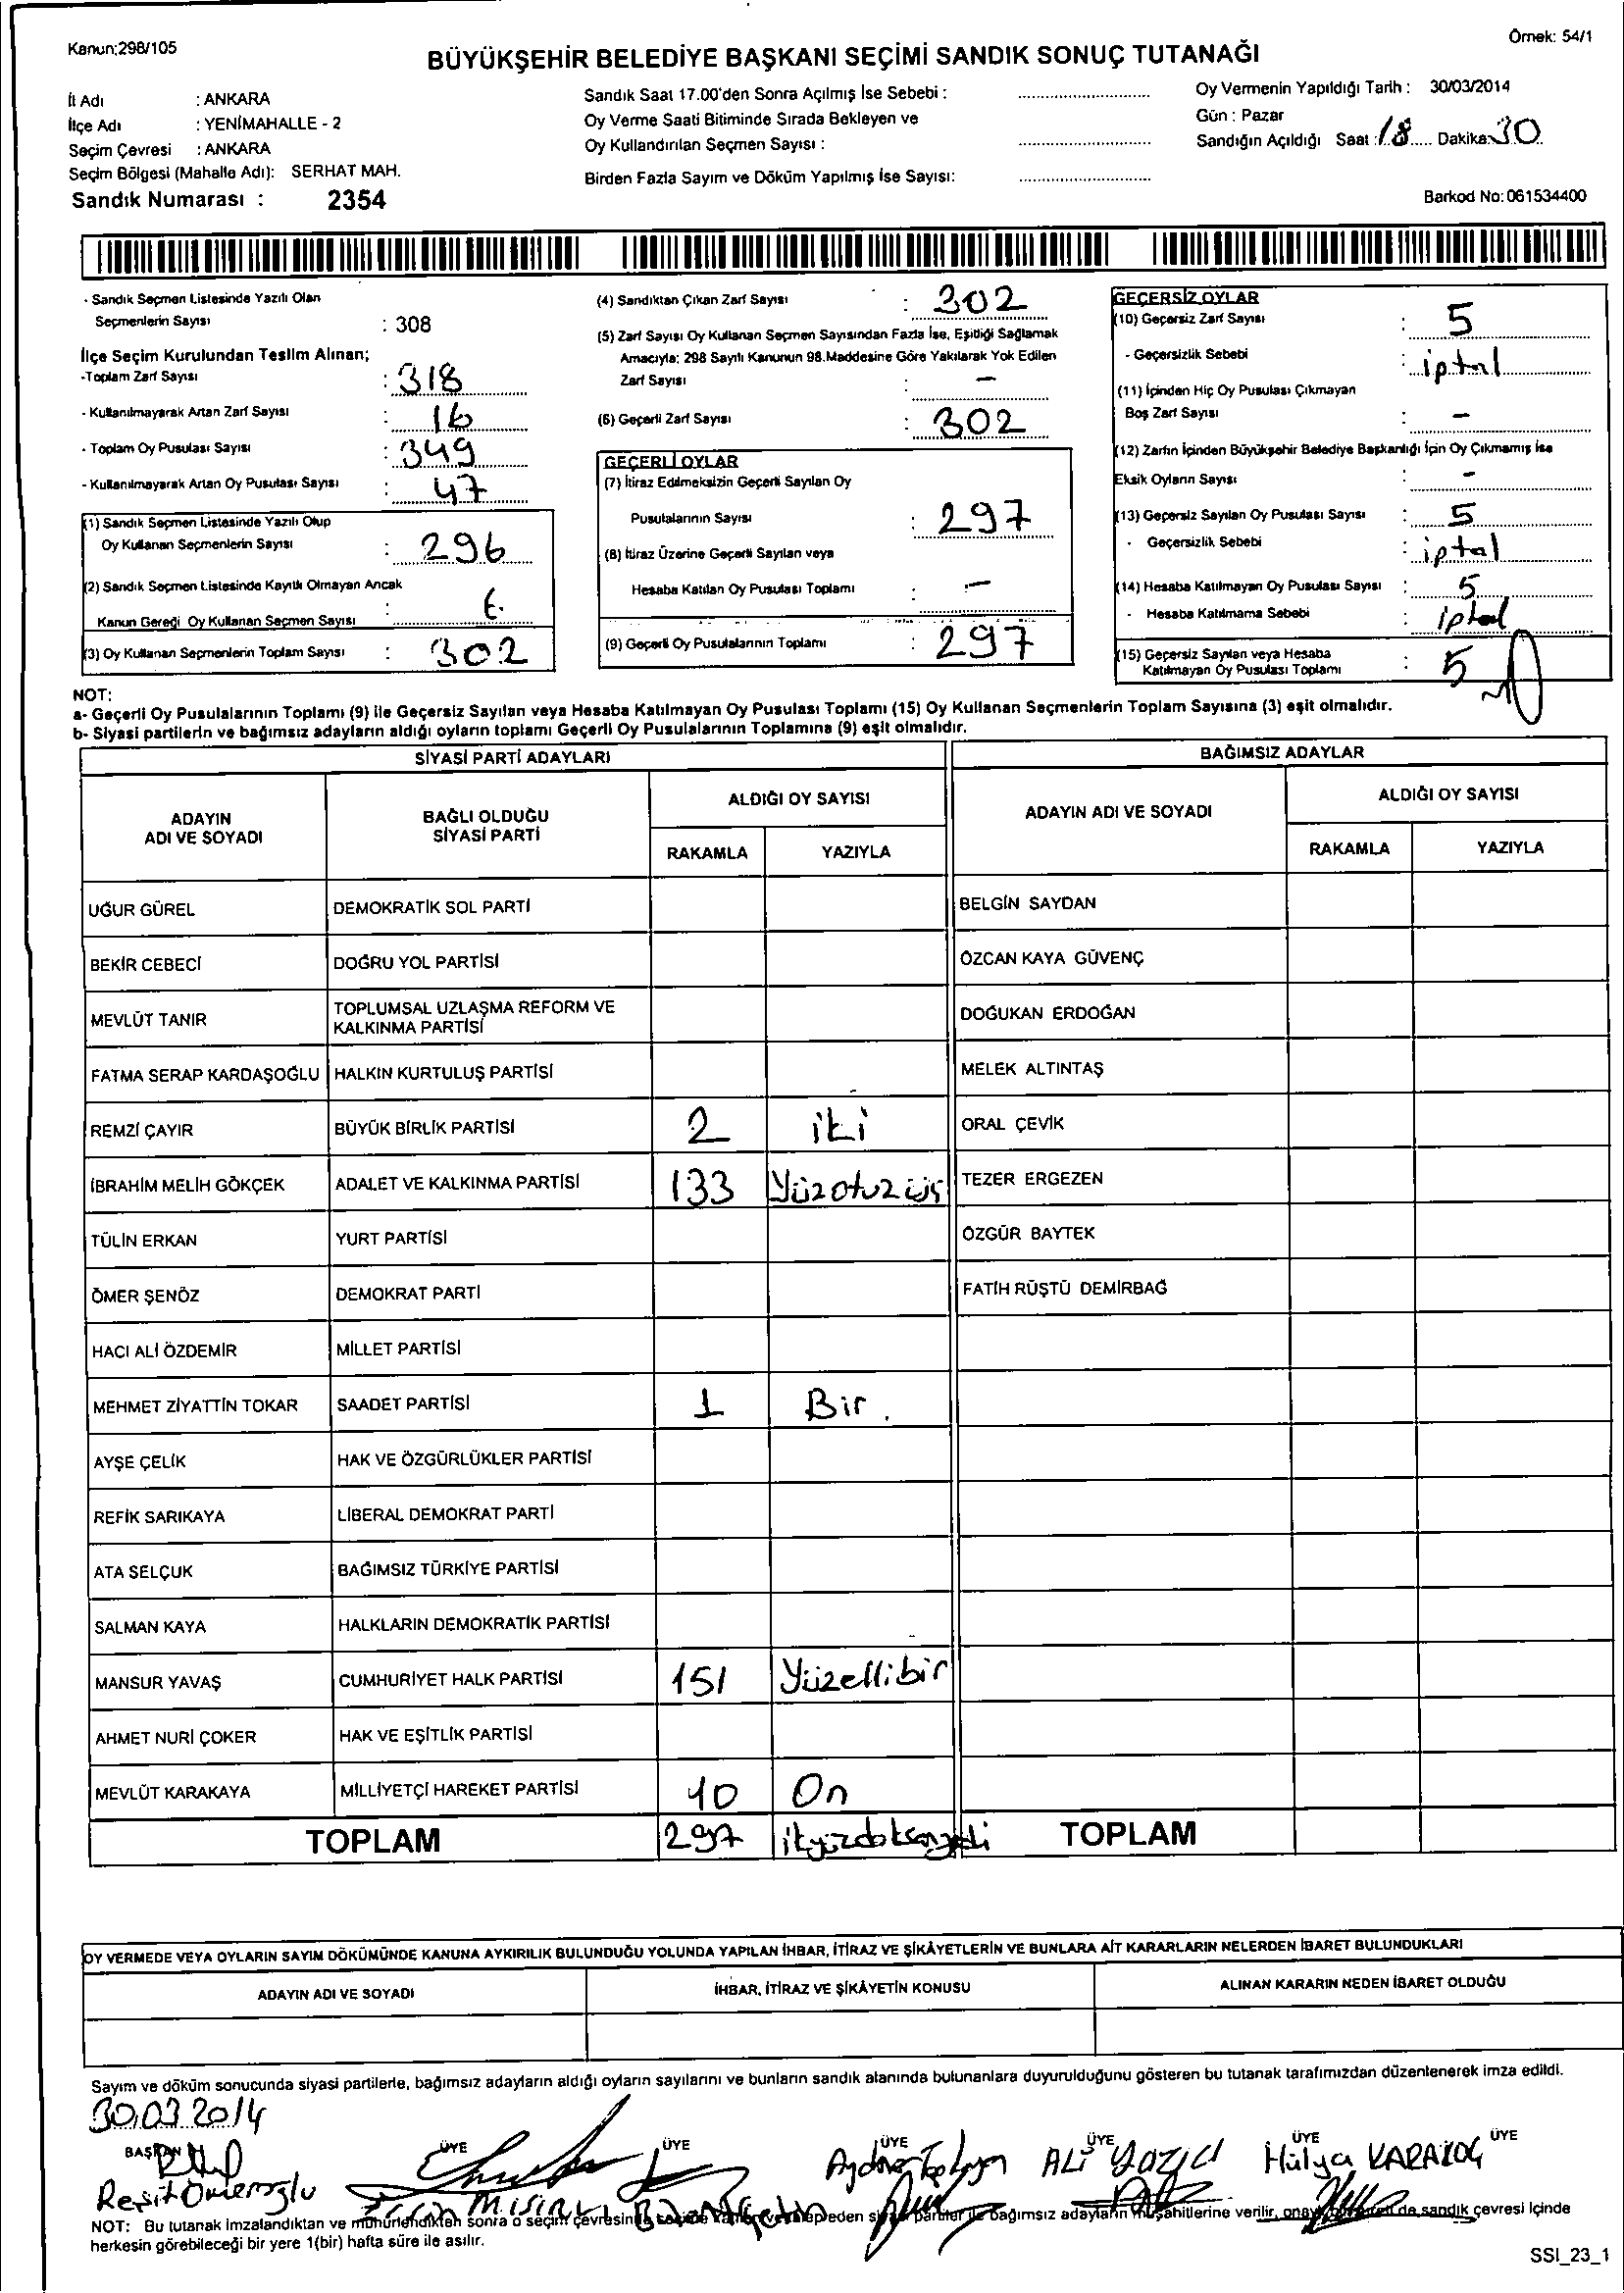 Kanun:298/105
Örnek: 54/1
BÜYÜKŞEHİR BELEDİYE BAŞKANI SEÇİMİ SANDIK SONUÇ TUTANAĞI
İl Adı : ANKARA
İlçe Adı : YENİMAHALLE - 2
Seçim Çevresi : ANKARA
Seçim Bölgesi (Mahalle Adı): SERHAT MAH.
Sandık Numarası : 2354
Sandık Saat 17.00'den Sonra Açılmış İse Sebebi :
Oy Verme Saati Bitiminde Sırada Bekleyen ve
Oy Kullandırılan Seçmen Sayısı :
Birden Fazla Sayım ve Döküm Yapılmış İse Sayısı:
Oy Vermenin Yapıldığı Tarih : 30/03/2014
Gün : Pazar
Sandığın Açıldığı Saat : 18 Dakika: 30
Barkod No: 061534400
- Sandık Seçmen Listesinde Yazılı Olan
Seçmenlerin Sayısı : 308
İlçe Seçim Kurulundan Teslim Alınan;
-Toplam Zarf Sayısı : 318
- Kullanılmayarak Artan Zarf Sayısı : 16
- Toplam Oy Pusulası Sayısı : 349
- Kullanılmayarak Artan Oy Pusulası Sayısı : 47
(1) Sandık Seçmen Listesinde Yazılı Olup
Oy Kullanan Seçmenlerin Sayısı : 296
(2) Sandık Seçmen Listesinde Kayıtlı Olmayan Ancak
Kanun Gereği Oy Kullanan Seçmen Sayısı : 6.
(3) Oy Kullanan Seçmenlerin Toplam Sayısı : 302
(4) Sandıktan Çıkan Zarf Sayısı : 302
(5) Zarf Sayısı Oy Kullanan Seçmen Sayısından Fazla İse, Eşitliği Sağlamak
Amacıyla; 298 Sayılı Kanunun 98.Maddesine Göre Yakılarak Yok Edilen
Zarf Sayısı : -
(6) Geçerli Zarf Sayısı : 302
GEÇERLİ OYLAR
(7) İtiraz Edilmeksizin Geçerli Sayılan Oy
Pusulalarının Sayısı : 297
(8) İtiraz Üzerine Geçerli Sayılan veya
Hesaba Katılan Oy Pusulası Toplamı : -
(9) Geçerli Oy Pusulalarının Toplamı : 297
GEÇERSİZ OYLAR
(10) Geçersiz Zarf Sayısı : 5
- Geçersizlik Sebebi : iptal
(11) İçinden Hiç Oy Pusulası Çıkmayan
Boş Zarf Sayısı : -
(12) Zarfın İçinden Büyükşehir Belediye Başkanlığı İçin Oy Çıkmamış İse
Eksik Oyların Sayısı : -
(13) Geçersiz Sayılan Oy Pusulası Sayısı : 5
- Geçersizlik Sebebi : iptal
(14) Hesaba Katılmayan Oy Pusulası Sayısı : 5
- Hesaba Katılmama Sebebi : iptal
(15) Geçersiz Sayılan veya Hesaba
Katılmayan Oy Pusulası Toplamı : 5
NOT:
a- Geçerli Oy Pusulalarının Toplamı (9) ile Geçersiz Sayılan veya Hesaba Katılmayan Oy Pusulası Toplamı (15) Oy Kullanan Seçmenlerin Toplam Sayısına (3) eşit olmalıdır.
b- Siyasi partilerin ve bağımsız adayların aldığı oyların toplamı Geçerli Oy Pusulalarının Toplamına (9) eşit olmalıdır.
SİYASİ PARTİ ADAYLARI
BAĞIMSIZ ADAYLAR
ADAYIN
ADI VE SOYADI
BAĞLI OLDUĞU
SİYASİ PARTİ
ALDIĞI OY SAYISI
RAKAMLA YAZIYLA
ADAYIN ADI VE SOYADI
ALDIĞI OY SAYISI
RAKAMLA YAZIYLA
UĞUR GÜREL DEMOKRATİK SOL PARTİ BELGİN SAYDAN
BEKİR CEBECİ DOĞRU YOL PARTİSİ ÖZCAN KAYA GÜVENÇ
MEVLÜT TANIR TOPLUMSAL UZLAŞMA REFORM VE
KALKINMA PARTİSİ DOĞUKAN ERDOĞAN
FATMA SERAP KARDAŞOĞLU HALKIN KURTULUŞ PARTİSİ MELEK ALTINTAŞ
REMZİ ÇAYIR BÜYÜK BİRLİK PARTİSİ 2 iki ORAL ÇEVİK
İBRAHİM MELİH GÖKÇEK ADALET VE KALKINMA PARTİSİ 133 Yüzotuzüç TEZER ERGEZEN
TÜLİN ERKAN YURT PARTİSİ ÖZGÜR BAYTEK
ÖMER ŞENÖZ DEMOKRAT PARTİ FATİH RÜŞTÜ DEMİRBAĞ
HACI ALİ ÖZDEMİR MİLLET PARTİSİ
MEHMET ZİYATTİN TOKAR SAADET PARTİSİ 1 Bir.
AYŞE ÇELİK HAK VE ÖZGÜRLÜKLER PARTİSİ
REFİK SARIKAYA LİBERAL DEMOKRAT PARTİ
ATA SELÇUK BAĞIMSIZ TÜRKİYE PARTİSİ
SALMAN KAYA HALKLARIN DEMOKRATİK PARTİSİ
MANSUR YAVAŞ CUMHURİYET HALK PARTİSİ 151 Yüzellibir
AHMET NURİ ÇOKER HAK VE EŞİTLİK PARTİSİ
MEVLÜT KARAKAYA MİLLİYETÇİ HAREKET PARTİSİ 10 On
TOPLAM 297 ikiyüzdoksanyedi TOPLAM
OY VERMEDE VEYA OYLARIN SAYIM DÖKÜMÜNDE KANUNA AYKIRILIK BULUNDUĞU YOLUNDA YAPILAN İHBAR, İTİRAZ VE ŞİKÂYETLERİN VE BUNLARA AİT KARARLARIN NELERDEN İBARET BULUNDUKLARI
ADAYIN ADI VE SOYADI İHBAR, İTİRAZ VE ŞİKÂYETİN KONUSU ALINAN KARARIN NEDEN İBARET OLDUĞU
Sayım ve döküm sonucunda siyasi partilerle, bağımsız adayların aldığı oyların sayılarını ve bunların sandık alanında bulunanlara duyurulduğunu gösteren bu tutanak tarafımızdan düzenlenerek imza edildi.
30.03.2014
BAŞKAN ÜYE ÜYE ÜYE ÜYE ÜYE ÜYE
Ali Yazıcı Hülya KARAKOÇ
Reşit Ömeroğlu
NOT: Bu tutanak imzalandıktan ve mühürlendikten sonra o seçim çevresinde bağımsız adayların müşahitlerine verilir, de sandık çevresi içinde
herkesin görebileceği bir yere 1(bir) hafta süre ile asılır.
SSI_23_1